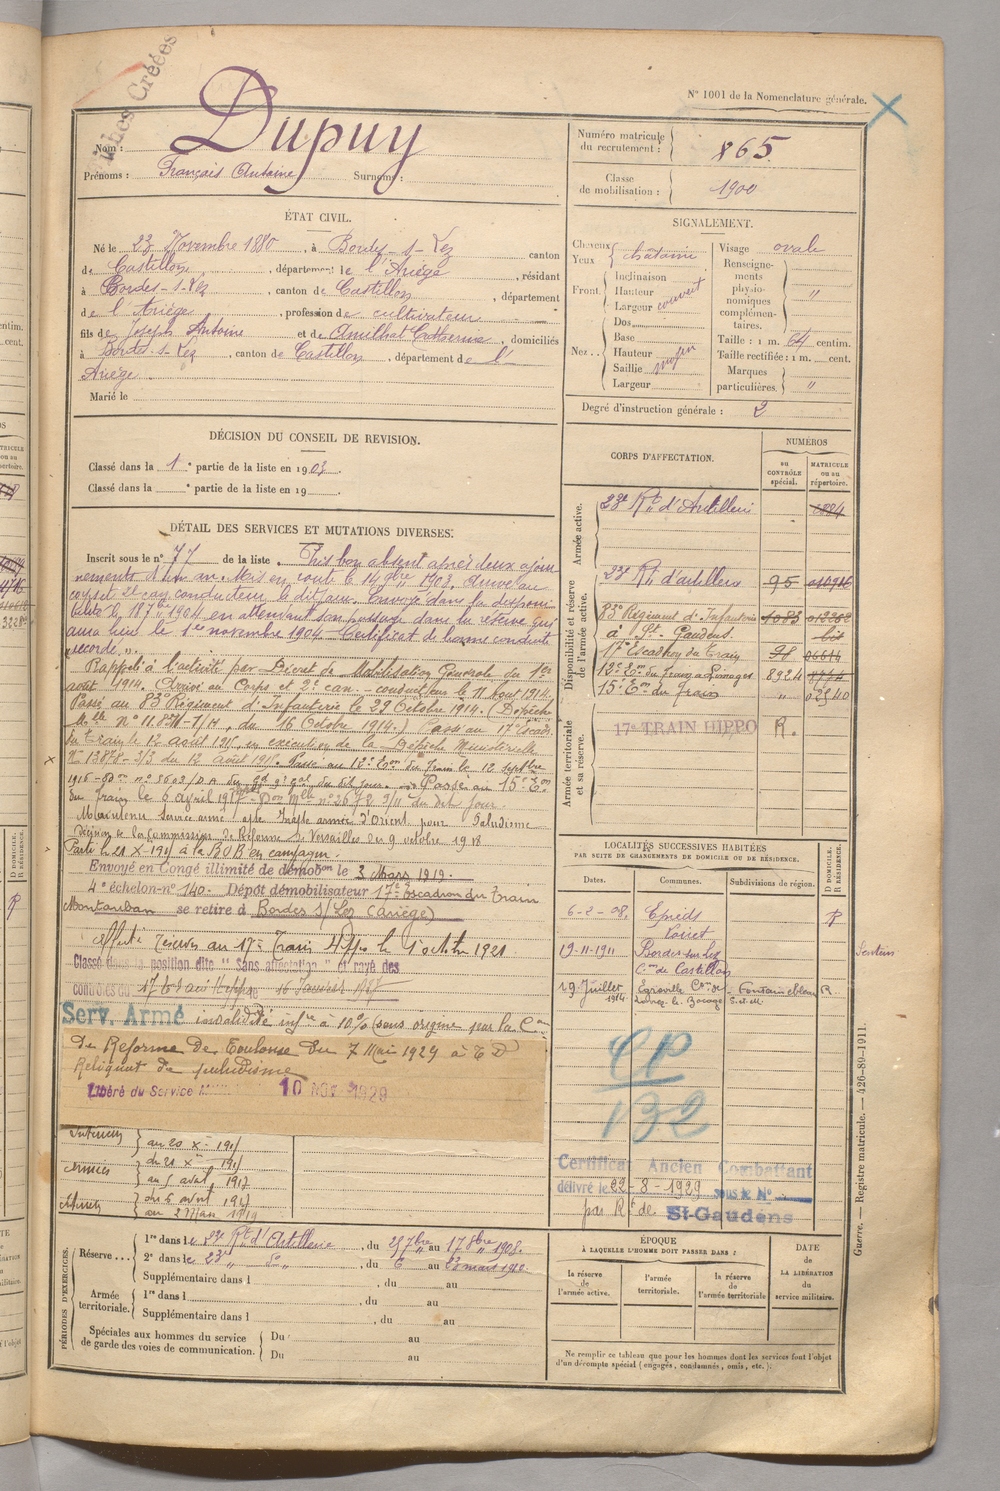 Fiches Créées
N° 1001 de la Nomenclature générale.
Nom : Dupuy
Prénoms : François Antoine Surnoms :
Numéro matricule du recrutement : 865
Classe de mobilisation : 1900
ÉTAT CIVIL.
Né le 23 Novembre 1880, à Bordes-s-Lez canton
de Castillon, département de l'Ariège, résidant
à Bordes-s-Lez, canton de Castillon, département
de l'Ariège, profession de cultivateur
fils de Joseph Antoine et de Amilhat Catherine, domiciliés
à Bordes-s-Lez, canton de Castillon, département de l'
Ariège
Marié le
SIGNALEMENT.
Cheveux
Yeux châtains
Front. Inclinaison
Hauteur
Largeur couvert
Nez.. Dos
Base
Hauteur
Saillie moyen
Largeur
Visage ovale
Renseignements physionomiques complémentaires. "
Taille : 1 m. 64 centim.
Taille rectifiée : 1 m. cent.
Marques particulières. "
Degré d'instruction générale : 2
DÉCISION DU CONSEIL DE REVISION.
Classé dans la 1e partie de la liste en 1903.
Classé dans la e partie de la liste en 19
DÉTAIL DES SERVICES ET MUTATIONS DIVERSES.
Inscrit sous le n° 77 de la liste. Pris bon absent après deux ajour
nements d'un an. Mis en route le 14 9bre 1903. Arrivé au
corps et 2e can. conducteur le dit jour. Envoyé dans la disponi
bilité le 18 7bre 1904 en attendant son passage dans la réserve qui
aura lieu le 1er novembre 1904. Certificat de bonne conduite
"accordé".
Rappelé à l'activité par Décret de Mobilisation Générale du 1er
août 1914. Arrivé au Corps et 2e can. conducteur le 11 Août 1914.
Passé au 83e Régiment d'Infanterie le 29 Octobre 1914. (Dépêche
Mlle N° 11.834-1/H, du 16 Octobre 1914.) Passé au 17e Escad.
du Train le 12 août 191 en exécution de la Dépêche Ministérielle
N° 13878-3/3 du 12 Août 191. Passé au 12e Eon du Train le 12 Septbre
1916 du dit jour. Passé au 15e Eon
du Train le 6 avril 1917 Don Mlle n° 2672 3/11 du dit jour.
Maintenu service armé apte Armée d'Orient pour Paludisme
décision de la Commission de Réforme de Versailles du 9 octobre 1918
Parti le 21 X-191 à la B.O.B en campagne.
Envoyé en Congé illimité de démobon le 3 Mars 1919.
4e échelon-n° 140. Dépôt démobilisateur 17e Escadron du Train
Montauban se retire à Bordes s/Lez (Ariège)
Affecté réserves au 17e Train Hippo le 1 octobre 1921
Classé dans la position dite "Sans affectation" et rayé des
contrôles du 17e Train Hippo 16 Janvier 1927
Serv. Armé invalidité infre à 10% (sans origine par la Con
de Réforme de Toulouse du 7 Mai 1929 à T D
Reliquat de paludisme
Libéré du Service M
10 NOV 1929
Intérieur au 20 X- 191
Armées du 21 X- 191
au 5 avril 1917
Intérieur du 6 avril 1917
au 2 Mars 1919
CORPS D'AFFECTATION.
NUMÉROS
AU CONTRÔLE spécial.
MATRICULE ou au répertoire.
Armée active.
23e Rt d'Artillerie
Disponibilité et réserve de l'armée active.
23e Rt d'artillerie 95
83e Régiment d'Infanterie 1083
à St Gaudens bis
17e Escadron du Train
12e Eon du Train à Limoges 8924
15e Eon du Train " 02540
Armée territoriale et sa réserve.
17e TRAIN HIPPO R.
LOCALITÉS SUCCESSIVES HABITÉES
PAR SUITE DE CHANGEMENTS DE DOMICILE OU DE RÉSIDENCE.
Dates. Communes. Subdivisions de région. D DOMICILE. R RÉSIDENCE.
6-2-08. Epieds R
Loiret
19-11-11 Bordes sur Lez
Con de Castillon
19 Juillet 1914 Egreville Con de Lorrez-le-Bocage S.et M. Fontainebleau R.
CP
132
Certificat Ancien Combattant
délivré le 22-8-1929 sous le N°
par Rt de St-Gaudens
PÉRIODES D'EXERCICES.
Réserve... 1re dans le 23e Rt d'Artillerie, du 25 7bre au 17 8bre 1908.
2e dans le 23e " d° ", du 6 au 23 mars 1910
Supplémentaire dans l , du au
Armée territoriale. 1re dans l , du au
Supplémentaire dans l , du au
Spéciales aux hommes du service de garde des voies de communication. Du au
Du au
ÉPOQUE
À LAQUELLE L'HOMME DOIT PASSER DANS :
la réserve de l'armée active.
l'armée territoriale.
la réserve de l'armée territoriale
DATE DE LA LIBÉRATION du service militaire.
Ne remplir ce tableau que pour les hommes dont les services font l'objet
d'un décompte spécial (engagés, condamnés, omis, etc.).
Guerre. — Registre matricule. — 426-89-1911.